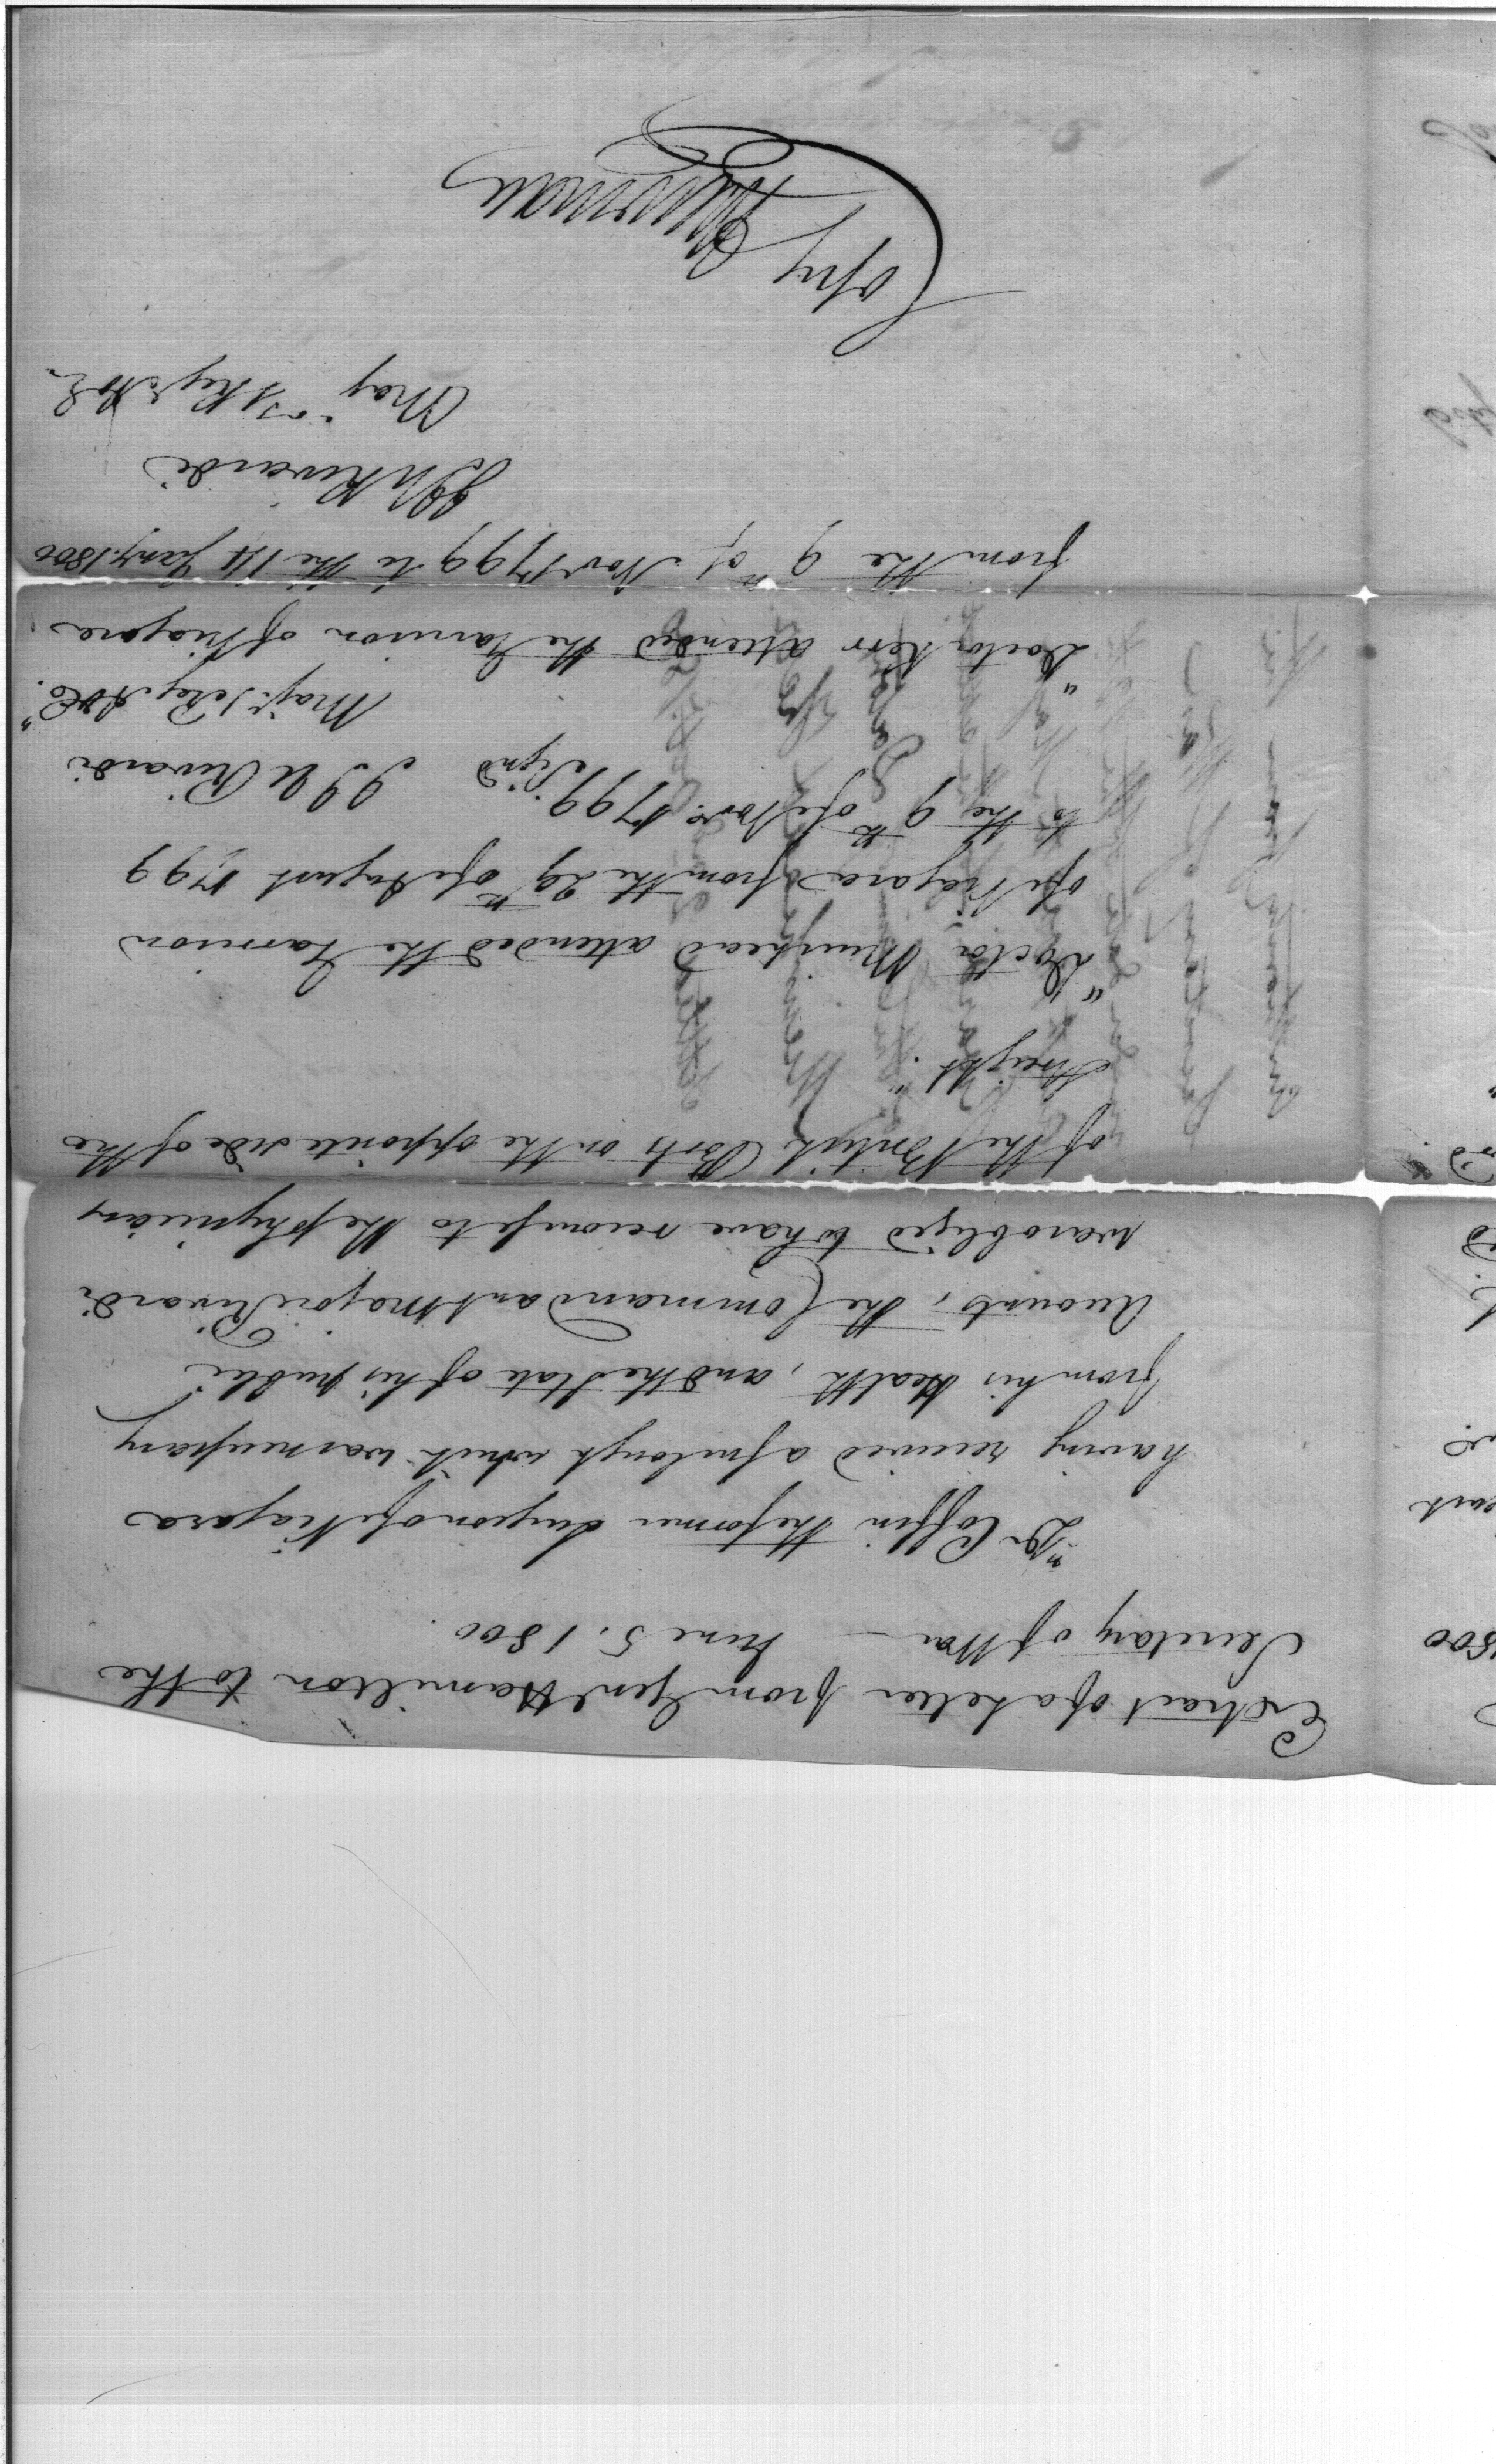 Extract of a Letter from Genl Hamilton to the
Secretary of War — June 5. 1800.
"Dr. Coffin the former Surgeon of Niagara
having received a furlough which was necessary
from his Health, and the State of his public
Accounts, the Commandant Major Rivardi
was obliged to have recourse to the physicians
of the British Posts on the opposite side of the
Streight."
"Doctor Muirhead attended the Garrison
of Niagara from the 29th of August 1799
to the 9th of Novr. 1799. Signd J J U Rivardi
Majr. 1 Regt A&E."
"Doctor Kerr attended the Garrison of Niagara
from the 9th of Novr 1799 to the 14 Jany. 1800
J J U Rivardi
Majr 1 Regt A&E
Copy
1800